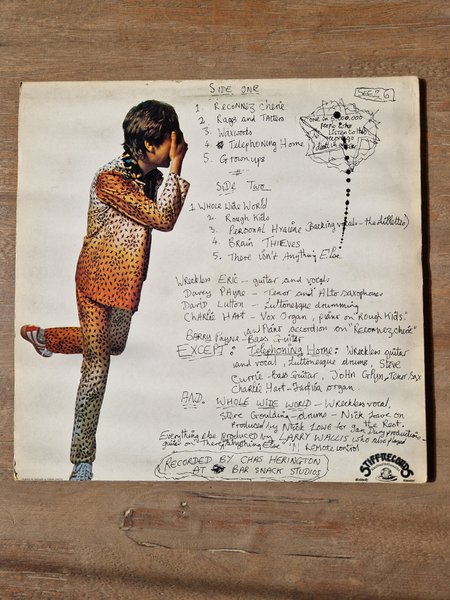 SIDE ONE
SEEZ 6
1. RECONNEZ CHERIE
2. Rags and TATTERS
3. Waxworks
4. Telephoning Home
5. Grown ups
one in 8,000,000
people who
Listen to this
record go
SIDE TWO
1 WHOLE WIDE WORLD
2. Rough Kids
3. PERSONAL HYGIENE (Backing vocals - the dilletties)
4. BRAIN THIEVES
5. There Isn't Anything Else
WRECKLESS ERIC - guitar and vocals
Davey PAYNE - Tenor and Alto saxophones
DAVID LUTTON - Luttonesque drumming
CHARLIE HART - Vox Organ, piano on "Rough Kids."
and Piano accordion on "Reconnez cherie"
BARRY PAYNE - Bass Guitar
EXCEPT: Telephoning Home: Wreckless guitar
and vocal, Luttonesque drums, Steve
Currie - Bass Guitar, JOHN Glyn - Tenor Sax
Charlie Hart - Farfisa organ.
AND. WHOLE WIDE WORLD - Wreckless vocal,
Steve Goulding - drums - Nick Lowe on
the Rest.
Produced by NICK LOWE for Ian Dury productions -
Everything else produced by LARRY WALLIS who also played
guitar on "There isn't anything Else" remote control
RECORDED BY CHAS HERINGTON
- AT BAR SNACK STUDIOS
STIFF RECORDS